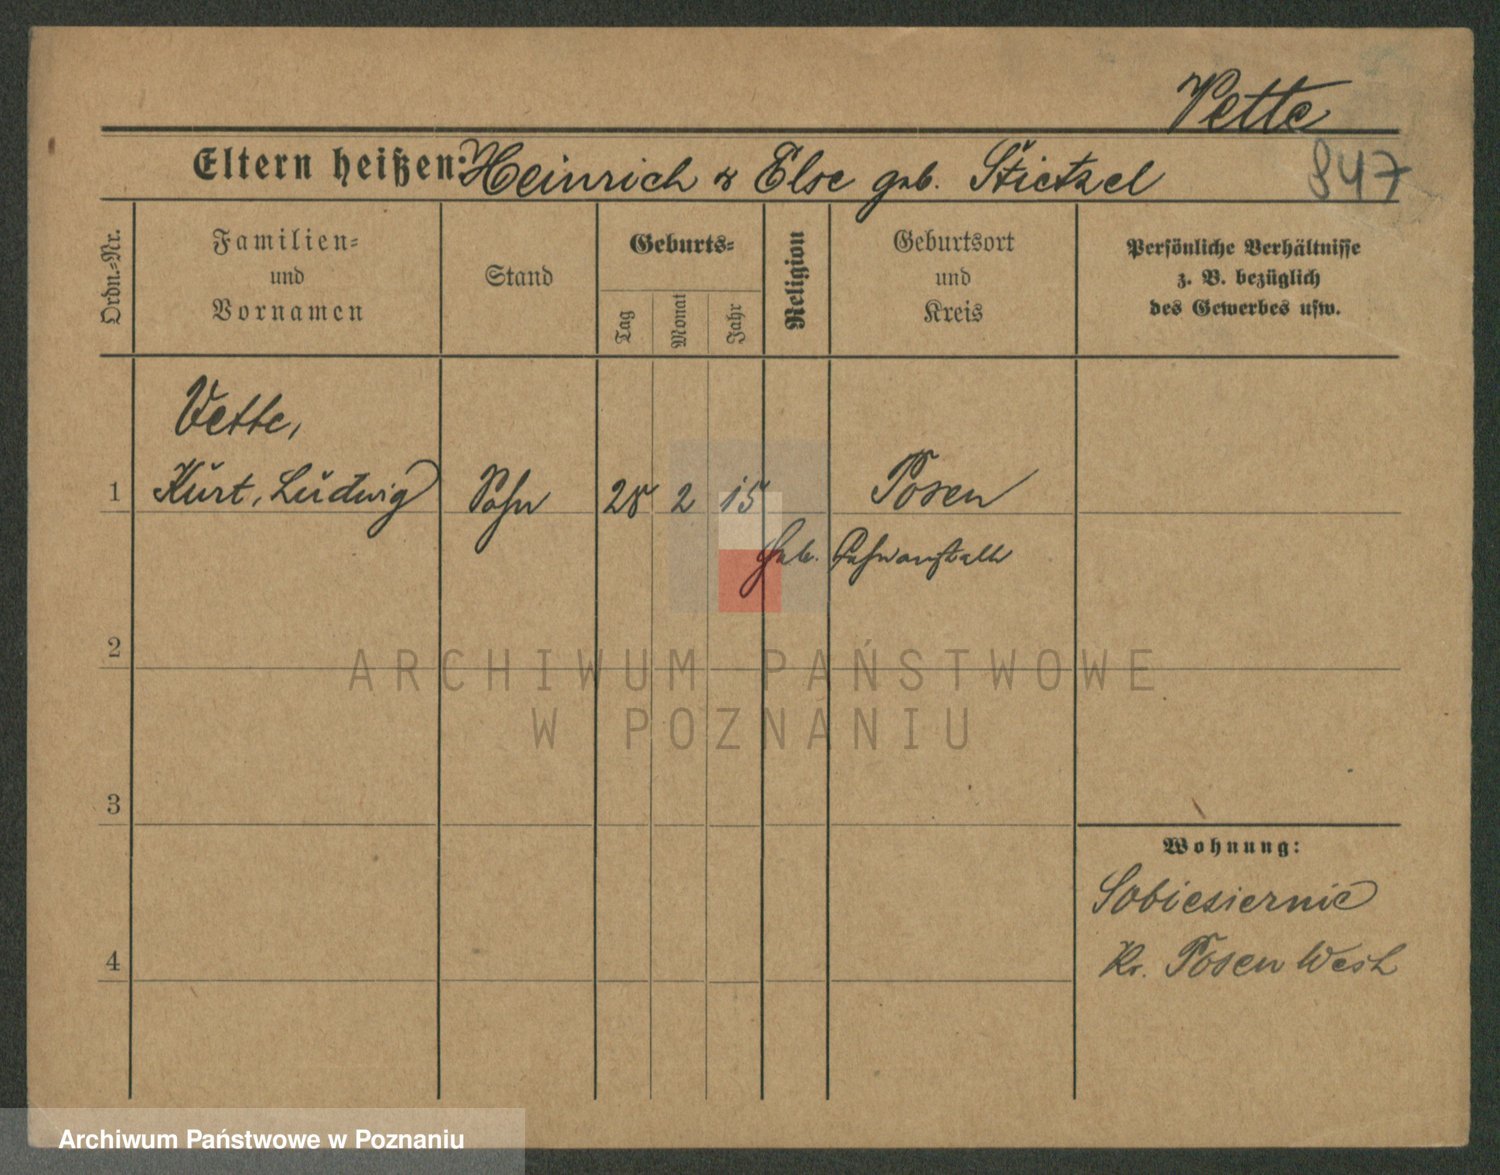 Vette
Eltern heißen: Heinrich & Else geb. Stietzel
847
Ordn.-Nr.
Familien-
und
Vornamen
Stand
Geburts-
Tag
Monat
Jahr
Religion
Geburtsort
und
Kreis
Persönliche Verhältnisse
z. B. bezüglich
des Gewerbes usw.
Vette,
1 Kurt, Ludwig Sohn 28 2 15 Posen
Geb.
2
ARCHIWUM PAŃSTWOWE
W POZNANIU
3
Wohnung:
Sobiesiernie
4 Kr. Posen West
Archiwum Państwowe w Poznaniu